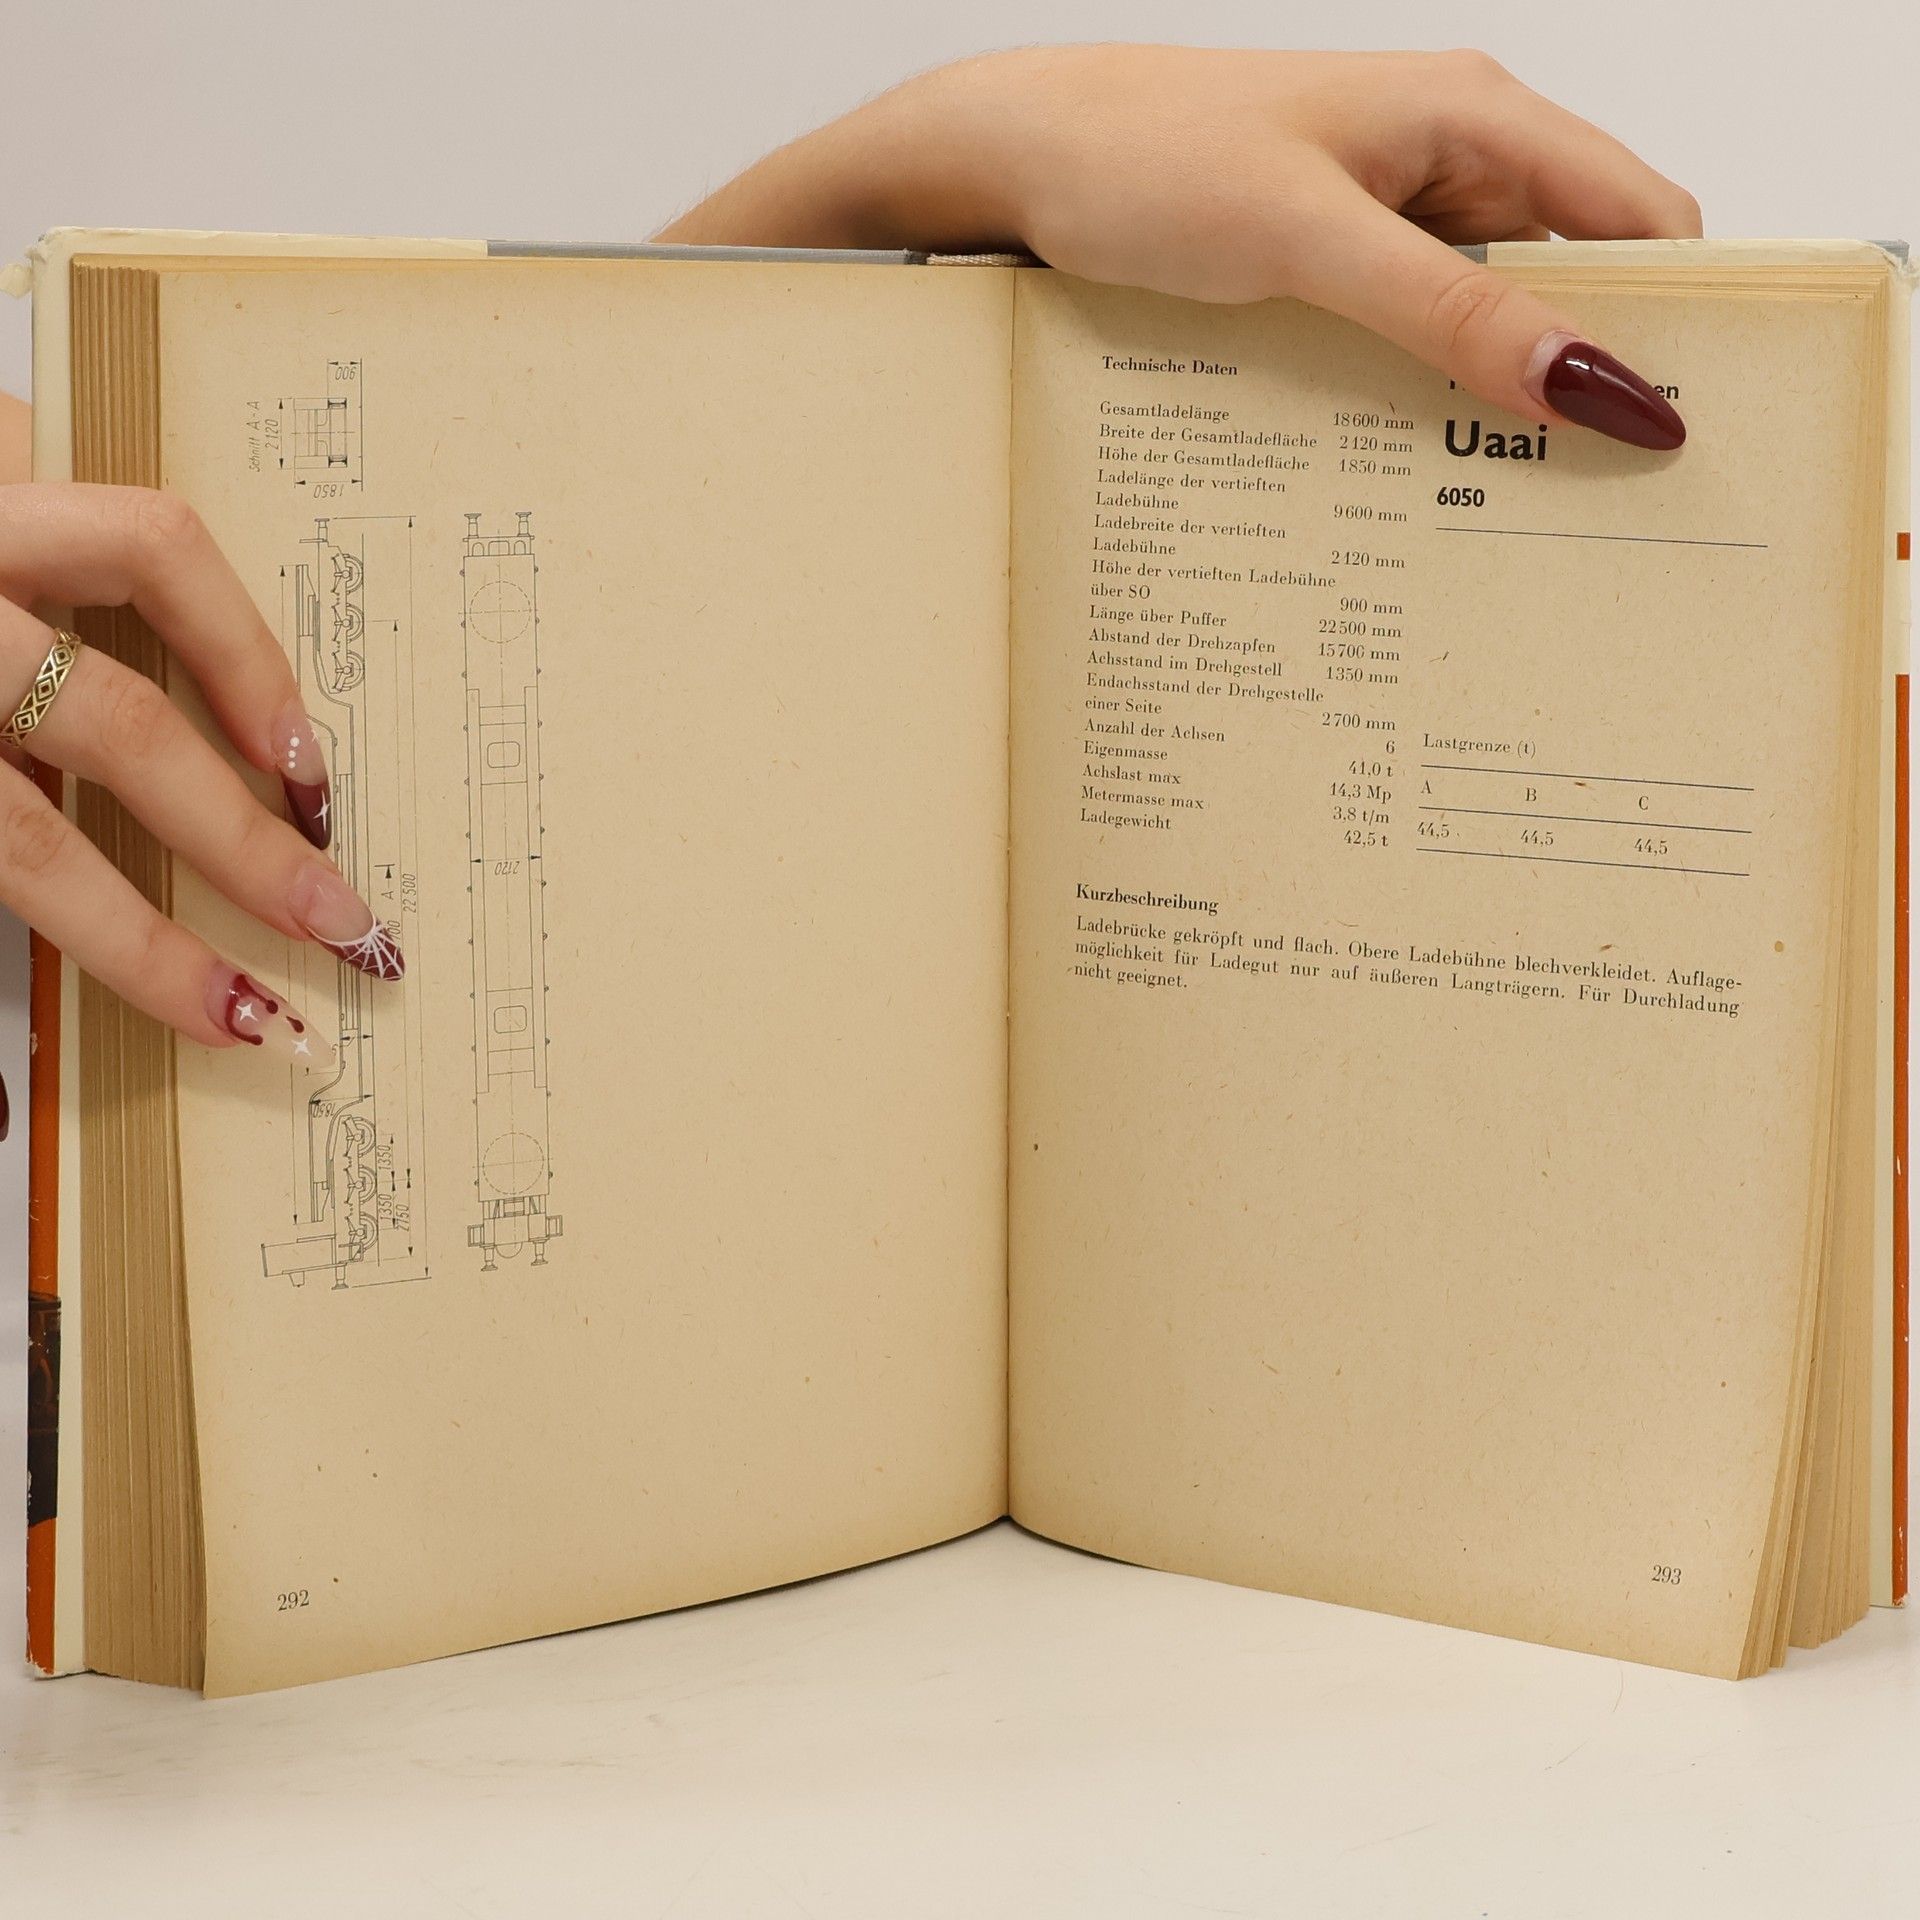 900
Schnitt A-A
2120
1850
2120
A
22 500
1850
1350
1350
2750
292
Technische Daten
Gesamtladelänge 18600 mm
Breite der Gesamtladefläche 2120 mm
Höhe der Gesamtladefläche 1850 mm
Ladelänge der vertieften
Ladebühne 9600 mm
Ladebreite der vertieften
Ladebühne 2120 mm
Höhe der vertieften Ladebühne
über SO 900 mm
Länge über Puffer 22500 mm
Abstand der Drehzapfen 15700 mm
Achsstand im Drehgestell 1350 mm
Endachsstand der Drehgestelle
einer Seite 2700 mm
Anzahl der Achsen 6
Eigenmasse 41,0 t
Achslast max 14,3 Mp
Metermasse max 3,8 t/m
Ladegewicht 42,5 t
Uaai
6050
Lastgrenze (t)
A B C
44,5 44,5 44,5
Kurzbeschreibung
Ladebrücke gekröpft und flach. Obere Ladebühne blechverkleidet. Auflage-
möglichkeit für Ladegut nur auf äußeren Langträgern. Für Durchladung
nicht geeignet.
293